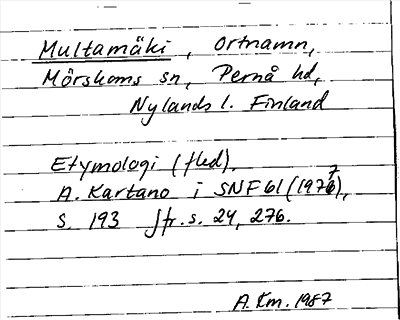 Multamäki, Ortnamn,
Mörskoms sn, Pernå hd,
Nylands l. Finland
Etymologi (fled).
A. Kartano i SNF 61 (1977),
s. 193 Jfr. s. 24, 276.
A. Km. 1987